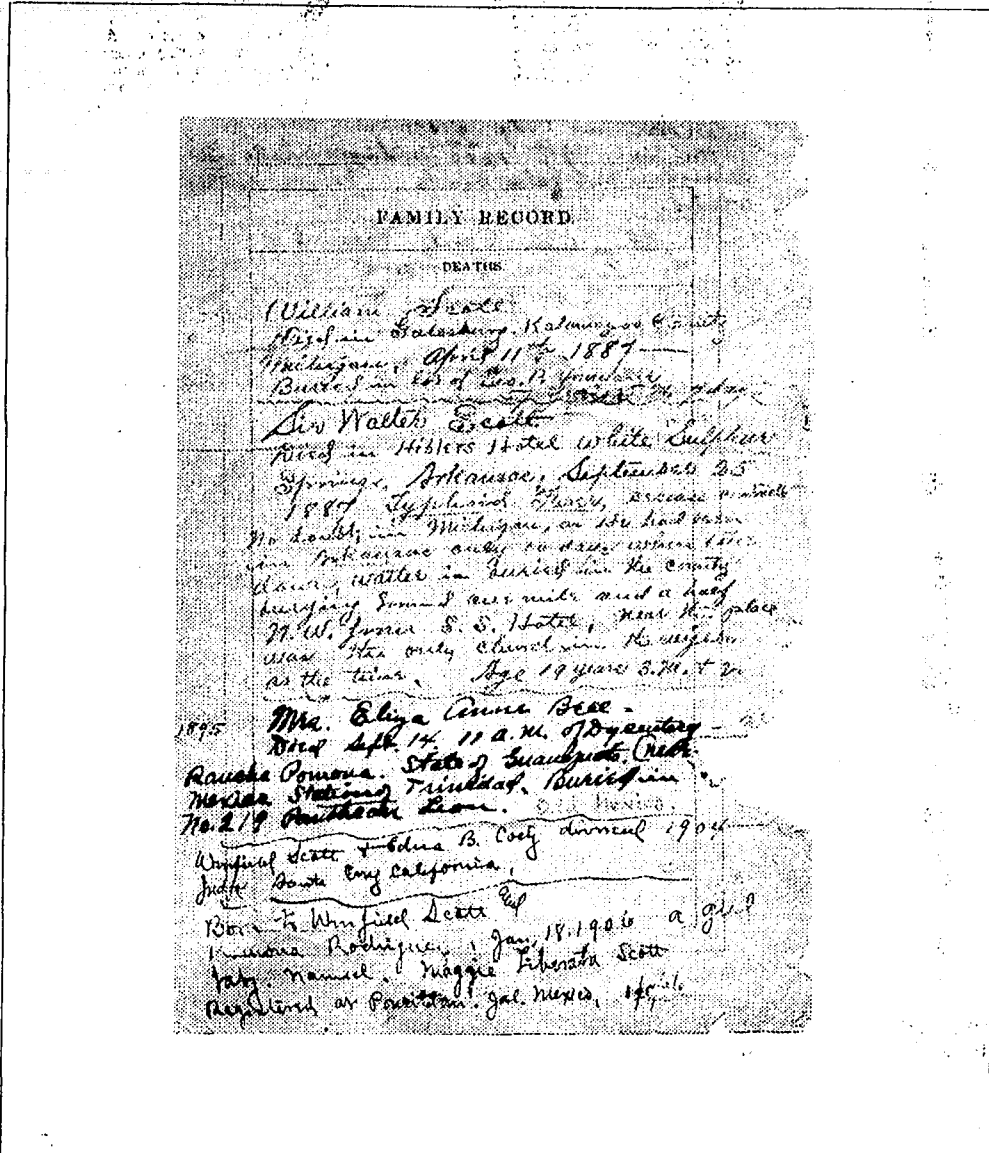 FAMILY RECORD
DEATHS
William Scott
Died in Galesburg, Kalamazoo County
Michigan, April 11th 1887
Buried in lot of Geo. B.
Sir Walter Scott
Died in Hiblers Hotel White Sulphur
Springs, Arkansas, September 25
1887 Typhoid Fever, disease
no doubt, in Michigan, as He had been
in Arkansas only days when
down, Walter is buried in the county
burying Ground one mile and a half
N.W. from S.S. Hotel, near this place
was the only church in the region
at the time. Age 19 years 3.M. +
1895 Mrs. Eliza Anne Bree -
Died Sept. 14. 11 A.M. of Dysentery -
Rancho Pomona. State of Guanajuato (near
Mexico Station of Trinidad. Buried in
No. 219 Pantheon Leon.
Winfield Scott + Edna B. Cory divorced 1904
Santa Cruz California,
Born to Winfield Scott and
Ramona Rodriguez, Jan. 18. 1906 a girl
baby. Named. Maggie Liberata Scott
Registered at Poncitlan. Jal. Mexico,